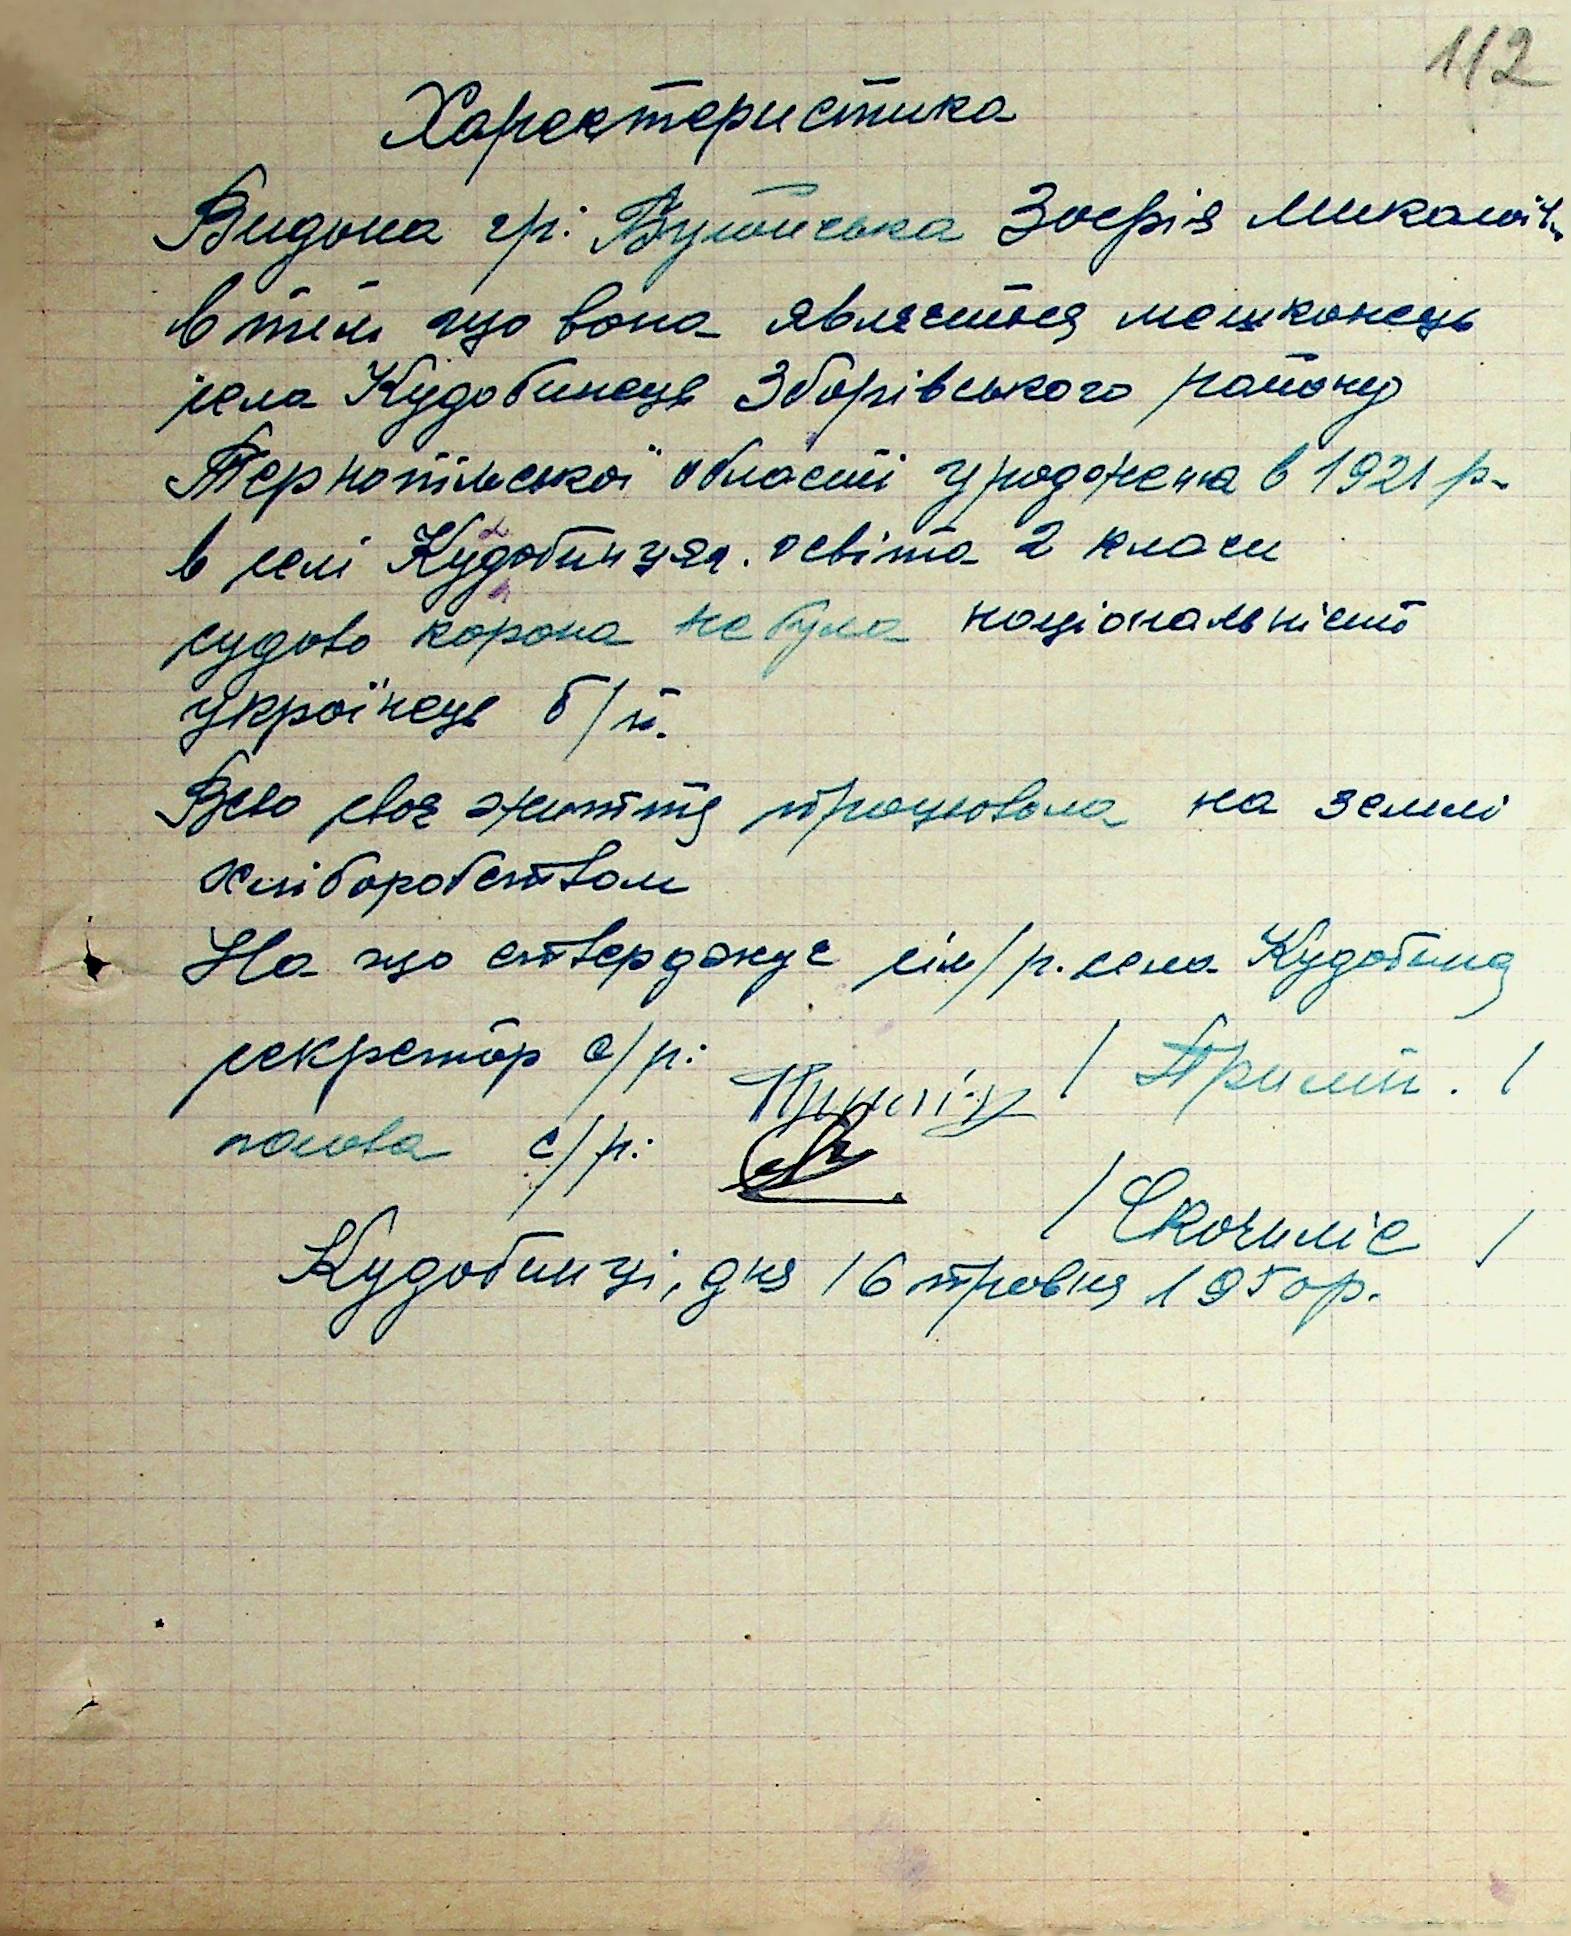 112
Характеристика
Видона гр: Зосфія Миколаїв.
в тім що вона являється мешконець
села Кудобинець Зборівського району
Тернопільської області уроджена в 1921 р.
в селі Кудобинцях. освіта 2 класи
судово корона не була національність
українець б/п.
Всьо своє життя працювала на землі
хліборобством
На що стверджує сіл/р. села Кудобинц
секретор с/р: / /
голова с/р: / /
Кудобинці, дня 16 травня 1950р.